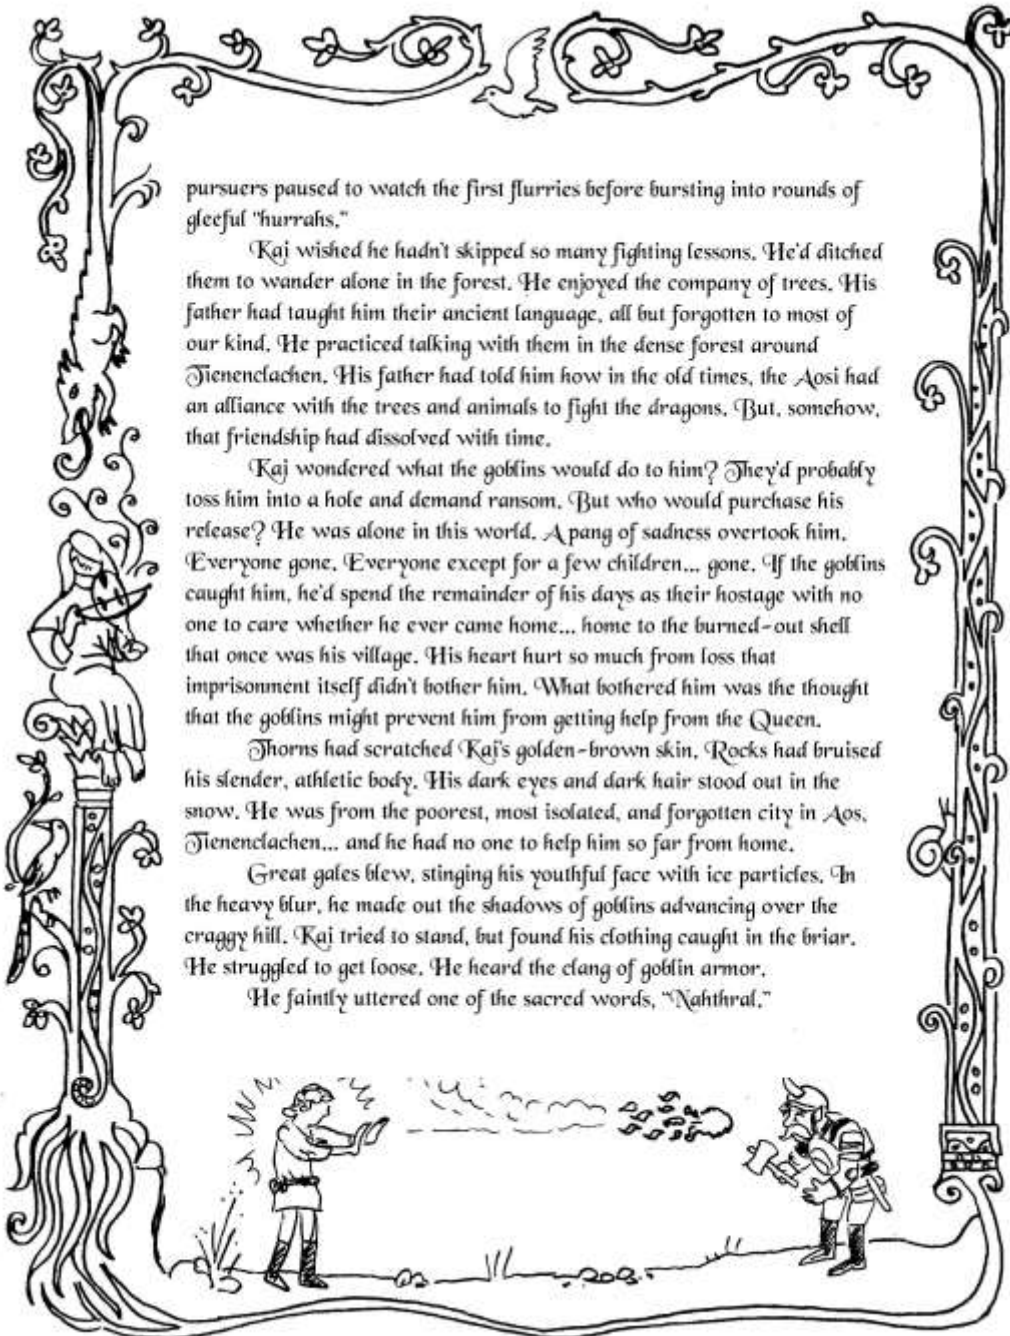 pursuers paused to watch the first flurries before bursting into rounds of
gleeful "hurrahs."
Kai wished he hadn't skipped so many fighting lessons. He'd ditched
them to wander alone in the forest. He enjoyed the company of trees. His
father had taught him their ancient language, all but forgotten to most of
our kind. He practiced talking with them in the dense forest around
Tienenclachen. His father had told him how in the old times, the Aosi had
an alliance with the trees and animals to fight the dragons. But, somehow,
that friendship had dissolved with time.
Kai wondered what the goblins would do to him? They'd probably
toss him into a hole and demand ransom. But who would purchase his
release? He was alone in this world. A pang of sadness overtook him.
Everyone gone. Everyone except for a few children... gone. If the goblins
caught him, he'd spend the remainder of his days as their hostage with no
one to care whether he ever came home... home to the burned-out shell
that once was his village. His heart hurt so much from loss that
imprisonment itself didn't bother him. What bothered him was the thought
that the goblins might prevent him from getting help from the Queen.
Thorns had scratched Kai's golden-brown skin. Rocks had bruised
his slender, athletic body. His dark eyes and dark hair stood out in the
snow. He was from the poorest, most isolated, and forgotten city in Aos,
Tienenclachen... and he had no one to help him so far from home.
Great gales blew, stinging his youthful face with ice particles. In
the heavy blur, he made out the shadows of goblins advancing over the
craggy hill. Kai tried to stand, but found his clothing caught in the briar.
He struggled to get loose. He heard the clang of goblin armor.
He faintly uttered one of the sacred words, "Nahthral."